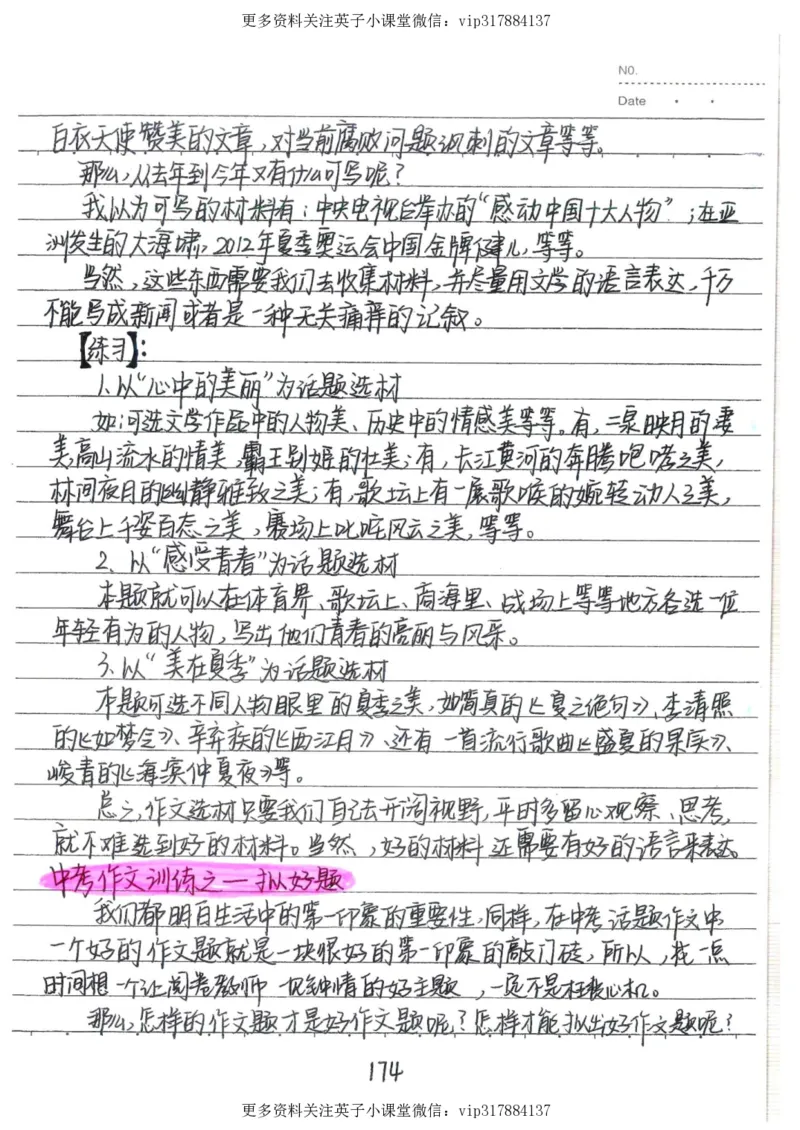 更多资料关注英子小课堂微信：vip317884137
NO.
Date
白衣天使赞美的文章，对当前腐败问题讽刺的文章等等。
那么，从去年到今年又有什么可写呢？
我以为可写的材料有：中央电视台举办的“感动中国十大人物”；在亚
洲发生的大海啸，2012年夏季奥运会中国金牌健儿，等等。
当然，这些东西需要我们去收集材料，并尽量用文学的语言表达，千万
不能写成新闻或者是一种无关痛痒的记叙。
【练习】：
1.以“心中的美丽”为话题选材
如：可选文学作品中的人物美、历史中的情感美等等。有，二泉映月的凄
美，高山流水的情美，霸王别姬的壮美；有，长江黄河的奔腾咆哮之美，
林间夜月的幽静雅致之美；有，歌坛上有一展歌喉的婉转动人之美，
舞台上千姿百态之美，赛场上叱咤风云之美，等等。
2、以“感受青春”为话题选材
本题就可以在体育界、歌坛上、商海里、战场上等等地方各选一位
年轻有为的人物，写出他们青春的亮丽与风采。
3.以“美在夏季”为话题选材
本题可选不同人物眼里的夏季之美，如简真的《夏之绝句》、李清照
的《如梦令》、辛弃疾的《西江月》、还有一首流行歌曲《盛夏的果实》、
峻青的《海滨仲夏夜》等。
总之，作文选材只要我们自己去开阔视野，平时多留心观察、思考，
就不难选到好的材料。当然，好的材料还需要有好的语言来表达。
中考作文训练之一拟好题
我们都明白生活中的第一印象的重要性，同样，在中考话题作文中
一个好的作文题就是一块很好的第一印象的敲门砖，所以，花一点
时间想一个让阅卷教师一见钟情的好主题，一定不是枉费心机。
那么，怎样的作文题才是好作文题呢？怎样才能拟出好作文题呢？
174
更多资料关注英子小课堂微信：vip317884137